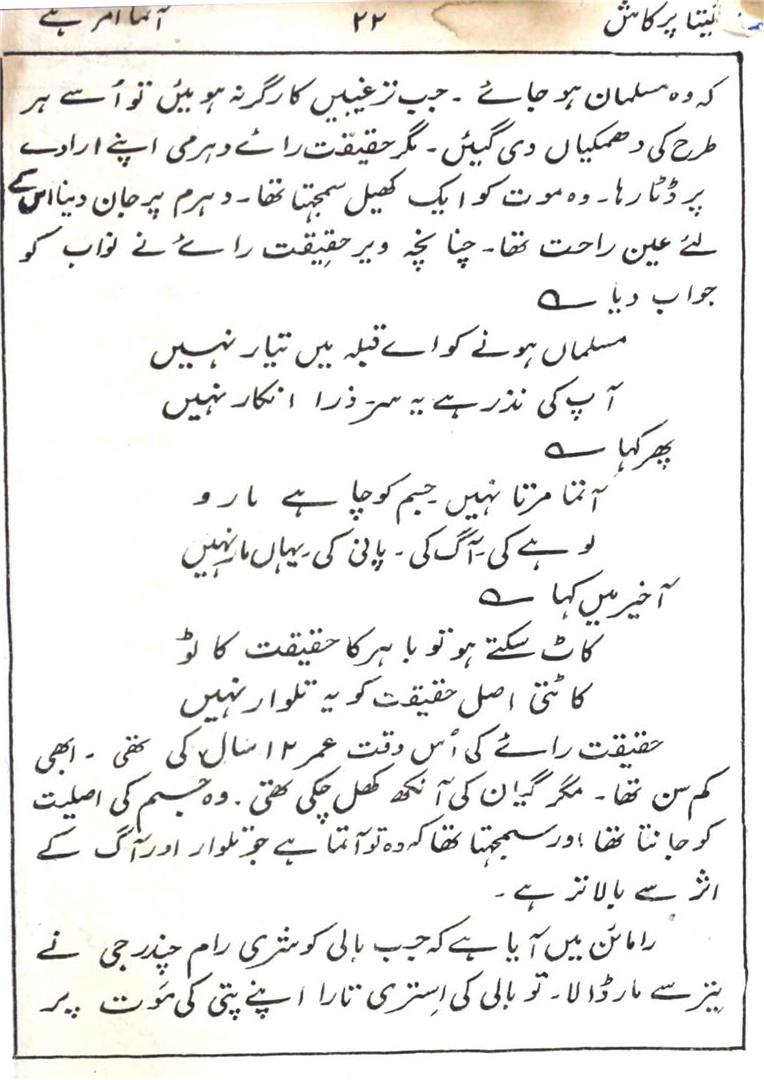 گیتا پرکاش ۲۲ آتما امر ہے
کہ وہ مسلمان ہو جائے ۔ جب ترغیبیں کارگر نہ ہوئیں تو اُسے ہر
طرح کی دھمکیاں دی گیئں ۔ مگر حقیقت رائے دہرمی اپنے ارادے
پر ڈٹا رہا ۔ وہ موت کو ایک کھیل سمجہتا تھا ۔ دہرم پر جان دینا اس کے
لئے عین راحت تھا ۔ چنانچہ ویر حقیقت رائے نے نواب کو
جواب دیا ؎
مسلماں ہونے کو اے قبلہ میں تیار نہیں
آپ کی نذر ہے یہ سر ذرا انکار نہیں
پھر کہا ؎
آتما مرتا نہیں جسم کو چاہے مارو
لوہے کی ۔ آگ کی ۔ پانی کی یہاں مار نہیں
آخیر میں کہا ؎
کاٹ سکتے ہو تو باہر کا حقیقت کاٹو
کاٹتی اصل حقیقت کو یہ تلوار نہیں
حقیقت رائے کی اُس وقت عمر ۱۲ سال کی تھی ۔ ابھی
کم سن تھا ۔ مگر گیان کی آنکھ کھل چکی تھی ۔ وہ جسم کی اصلیت
کو جانتا تھا اور سمجہتا تھا کہ وہ تو آتما ہے جو تلوار اور آگ کے
اثر سے بالاتر ہے ۔
رامائن میں آیا ہے کہ جب بالی کو شری رام چندر جی نے
تیر سے مار ڈالا ۔ تو بالی کی اِستری تارا اپنے پتی کی مَوت پر